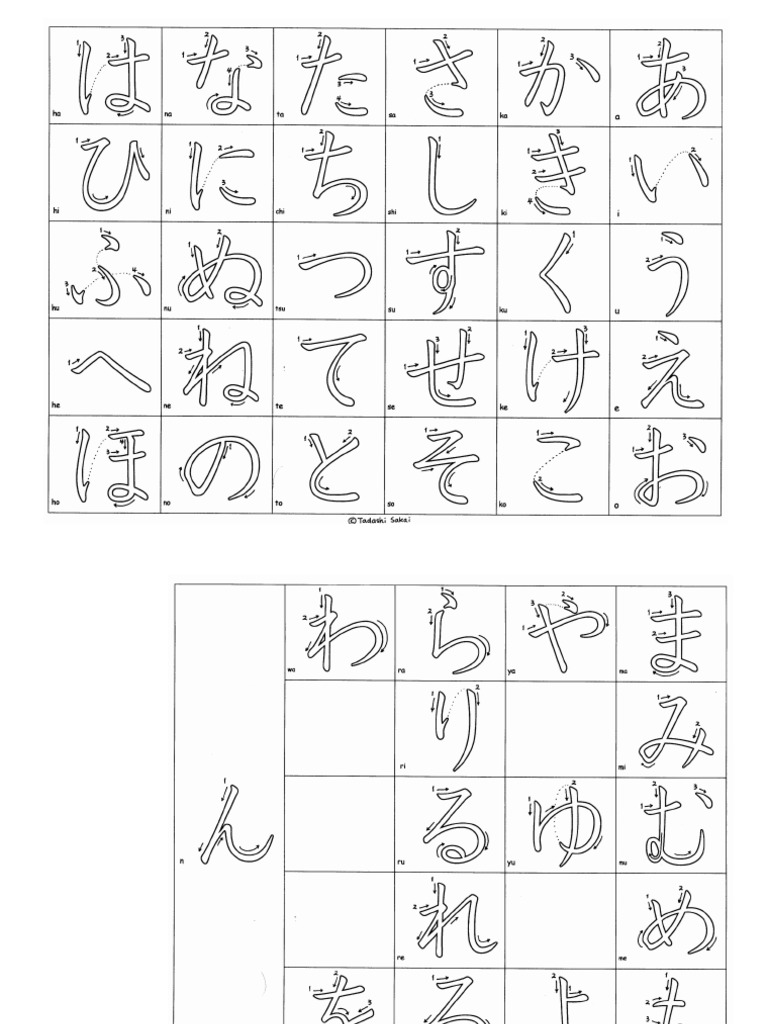 は な た さ か あ
ha na ta sa ka a
ひ に ち し き い
hi ni chi shi ki i
ふ ぬ つ す く う
hu nu tsu su ku u
へ ね て せ け え
he ne te se ke e
ほ の と そ こ お
ho no to so ko o
©Tadashi Sakai
わ ら や ま
wa ra ya ma
り み
ri mi
ん る ゆ む
n ru yu mu
れ め
re me
を ろ よ も